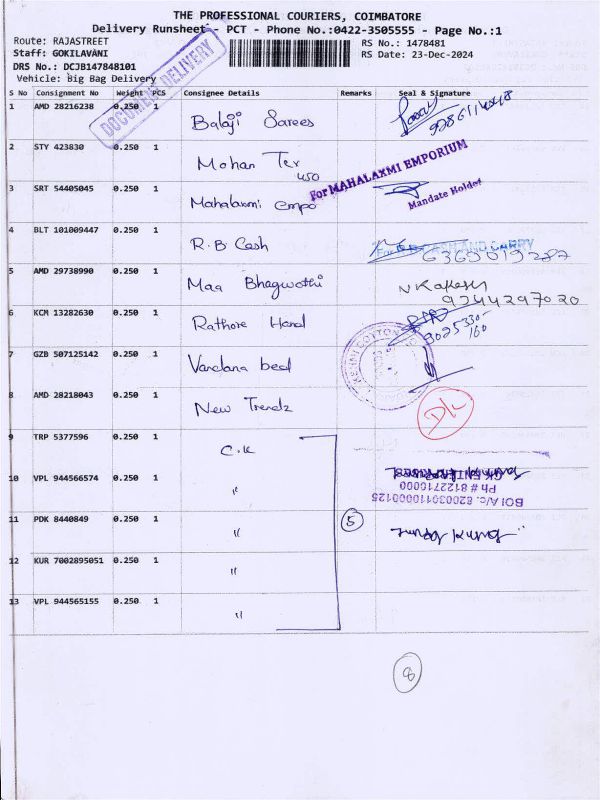 THE PROFESSIONAL COURIERS, COIMBATORE
Delivery Runsheet - PCT - Phone No.:0422-3505555 - Page No.:1
Route: RAJASTREET
RS No.: 1478481
Staff: GOKILAVANI
RS Date: 23-Dec-2024
DRS No.: DCJB147848101
Vehicle: Big Bag Delivery
DOCUMENT DELIVERY
S No Consignment No Weight PCS Consignee Details Remarks Seal & Signature
1 AMD 28216238 0.250 1 Balaji Sarees
2 STY 423830 0.250 1 Mohan Tex
450
For MAHALAXMI EMPORIUM
3 SRT 54405045 0.250 1 Mahalaxmi empo
Mandate Holder
4 BLT 101009447 0.250 1 R.B Cash
CASH AND CARRY
5 AMD 29738990 0.250 1 Maa Bhagwathi
N Rakesh
9244297020
6 KCM 13282630 0.250 1 Rathore Hand
7 GZB 507125142 0.250 1 Vandana bed
8 AMD 28218043 0.250 1 New Trendz
D/L
9 TRP 5377596 0.250 1 C.K
10 VPL 944566574 0.250 1 "
Ph # 8122710000
BOI A/c. 820030110000125
11 PDK 8440849 0.250 1 "
5
12 KUR 7002895051 0.250 1 "
13 VPL 944565155 0.250 1 "
8